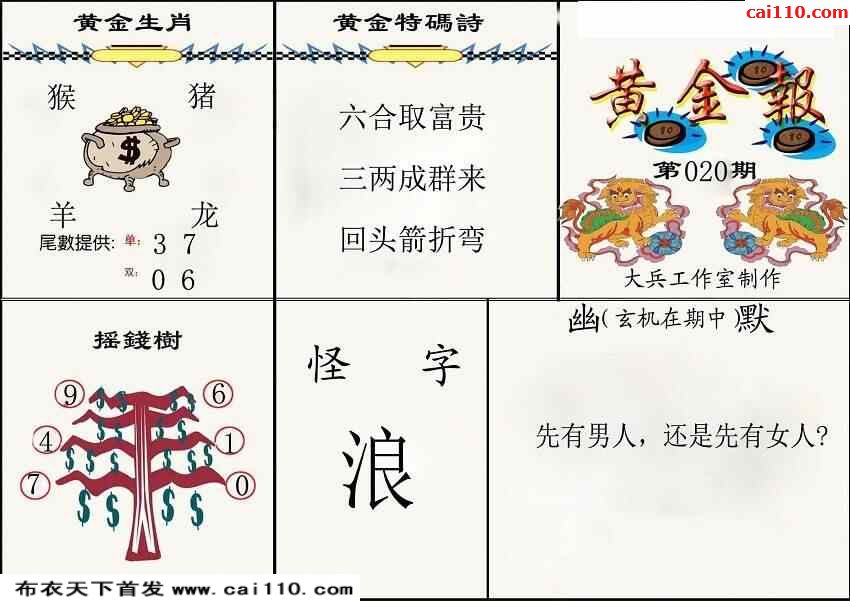 黄金生肖
猴 猪
$
羊 龙
尾數提供: 单: 3 7
双: 0 6
黄金特碼詩
六合取富贵
三两成群来
回头箭折弯
cai110.com
黄金報
第020期
大兵工作室制作
摇錢樹
9 6
4 1
7 0
怪 字
浪
幽(玄机在期中)默
先有男人，还是先有女人?
布衣天下首发 www.cai110.com